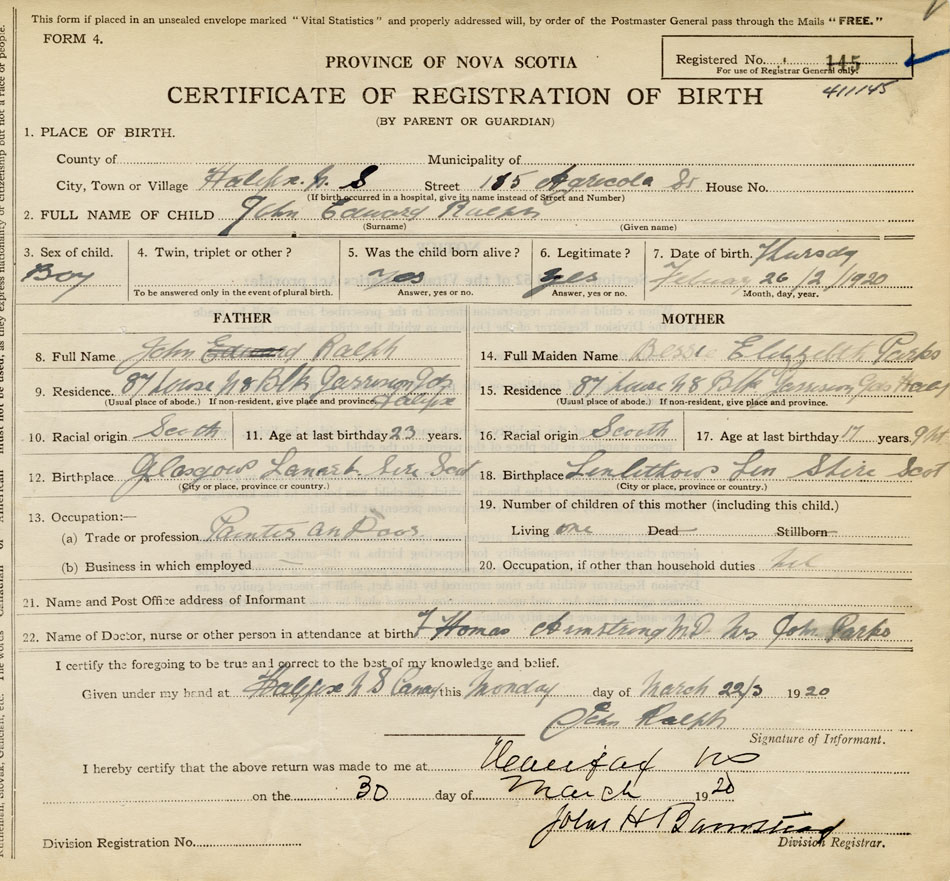 This form if placed in an unsealed envelope marked "Vital Statistics" and properly addressed will, by order of the Postmaster General pass through the Mails "FREE."
FORM 4.
Registered No. 145
For use of Registrar General only.
411145
PROVINCE OF NOVA SCOTIA
CERTIFICATE OF REGISTRATION OF BIRTH
(BY PARENT OR GUARDIAN)
1. PLACE OF BIRTH.
County of Municipality of
City, Town or Village Halifax. N. S Street 185 Agricola St House No.
(If birth occurred in a hospital, give its name instead of Street and Number)
2. FULL NAME OF CHILD John Edward Ralph
(Surname) (Given name)
3. Sex of child. 4. Twin, triplet or other? 5. Was the child born alive? 6. Legitimate? 7. Date of birth. Thursday
Boy Yes yes February 26/2/1920
To be answered only in the event of plural birth. Answer, yes or no. Answer, yes or no. Month, day, year.
FATHER MOTHER
8. Full Name John Edward Ralph 14. Full Maiden Name Bessie Elizabeth Parks
9. Residence. 87 House N 8 Blk Garrison Gds 15. Residence. 87 House N 8 Blk Garrison Gds
(Usual place of abode.) If non-resident, give place and province. Halifax (Usual place of abode.) If non-resident, give place and province.
10. Racial origin Scoth 11. Age at last birthday 23 years. 16. Racial origin Scouth 17. Age at last birthday 17 years.
12. Birthplace Glasgow Lanark Sire Scot 18. Birthplace Linlithows Lin Shire Scot
(City or place, province or country.) (City or place, province or country.)
19. Number of children of this mother (including this child.)
13. Occupation:—
(a) Trade or profession Painter an Decor Living one Dead Stillborn
(b) Business in which employed 20. Occupation, if other than household duties
21. Name and Post Office address of Informant
22. Name of Doctor, nurse or other person in attendance at birth Thomas Armstrong MD Mrs John Parks
I certify the foregoing to be true and correct to the best of my knowledge and belief.
Given under my hand at Halifax N S Canad this Monday day of March 22/3 1920
John Ralph
Signature of Informant.
I hereby certify that the above return was made to me at Halifax NS
on the 30 day of March 1920
John H Barnstead
Division Registration No. Division Registrar.